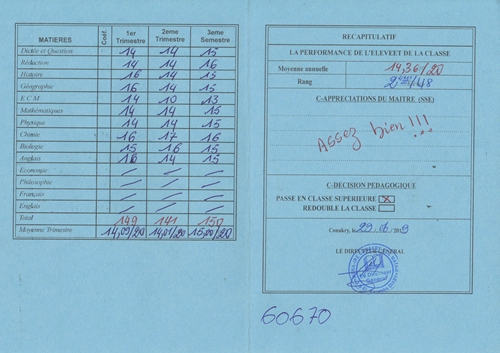 MATIERES Coéf. 1er Trimestre 2eme Trimestre 3eme Semestre
Dictée et Question 14 14 15
Rédaction 14 14 16
Histoire 16 14 15
Géographie 16 14 15
E C M 14 10 13
Mathématiques 14 14 15
Physique 14 14 15
Chimie 16 17 16
Biologie 15 16 15
Anglais 16 14 15
Economie
Philosophie
Français
Englais
Total 149 141 150
Moyenne Trimestre 14,09/20 14,01/20 15,00/20
RECAPITULATIF
LA PERFORMANCE DE L'ELEVEET DE LA CLASSE
Moyenne annuelle 14,36/20
Rang 2eme/48
C-APPRECIATIONS DU MAITRE (SSE)
Assez bien!!!
C-DECISION PEDAGOGIQUE
PASSE EN CLASSE SUPERIEURE X
REDOUBLE LA CLASSE
Conakry, le 29.06/2019
LE DIRECTEUR GENERAL
Le Directeur Général
60670